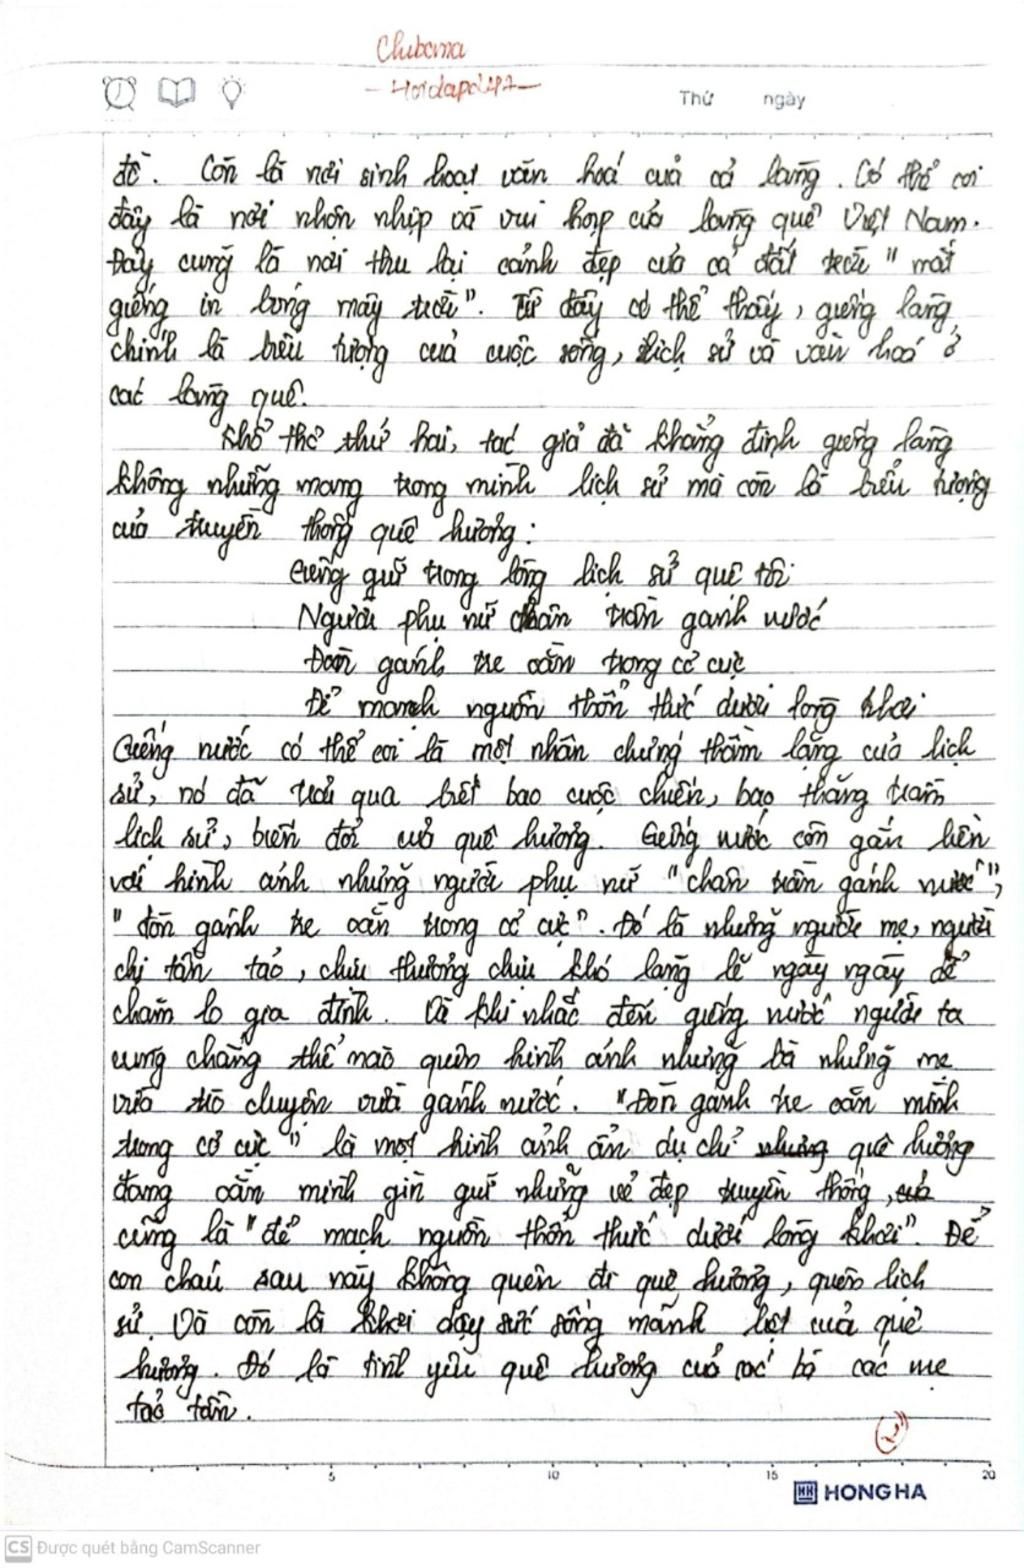 Chubema
- Hoidap247 -
Thứ ngày
đề. Còn là nơi sinh hoạt văn hoá của cả làng. Có thể coi
đây là nơi nhộn nhịp và vui họp của làng quê Việt Nam.
Đây cũng là nơi thu lại cảnh đẹp của cả đất trời "mắt
giếng in bóng mây trời". Từ đây có thể thấy, giếng làng
chính là biểu tượng của cuộc sống, lịch sử và văn hoá ở
các làng quê.
Khổ thơ thứ hai, tác giả đã khẳng định giếng làng
không những mang trong mình lịch sử mà còn là biểu tượng
của truyền thống quê hương:
Giếng giữ trong lòng lịch sử quê tôi
Người phụ nữ chân trần gánh nước
Đòn gánh tre oằn trong cơ cực
Để mạch nguồn thổn thức dưới lòng khơi
Giếng nước có thể coi là một nhân chứng thầm lặng của lịch
sử, nó đã trải qua biết bao cuộc chiến, bao thăng trầm
lịch sử, biến đổi của quê hương. Giếng nước còn gắn liền
với hình ảnh những người phụ nữ "chân trần gánh nước",
"đòn gánh tre oằn trong cơ cực". Đó là những người mẹ, người
chị tần tảo, chịu thương chịu khó lặng lẽ ngày ngày để
chăm lo gia đình. Và khi nhắc đến giếng nước người ta
cũng chẳng thể nào quên hình ảnh những bà những mẹ
vừa trò chuyện vừa gánh nước. "Đòn gánh tre oằn mình
trong cơ cực" là một hình ảnh ẩn dụ chỉ quê hương
đang oằn mình gìn giữ những vẻ đẹp truyền thống,
cũng là "để mạch nguồn thổn thức dưới lòng khơi". Để
con cháu sau này không quên đi quê hương, quên lịch
sử. Và còn là khơi dậy sức sống mãnh liệt của quê
hương. Đó là tình yêu quê hương của các bà các mẹ
tảo tần.
2
5 10 15 20
HH HONG HA
CS Được quét bằng CamScanner